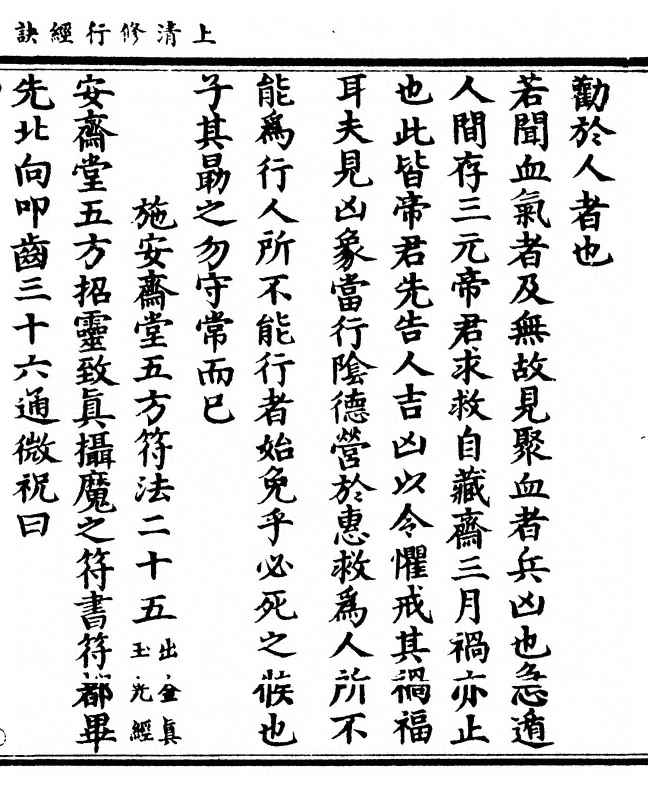 上清修行經訣
勸於人者也
若聞血氣者及無故見聚血者兵凶也急遁
人間存三元帝君求救自藏齋三月禍亦止
也此皆帝君先告人吉凶以令懼戒其禍福
耳夫見凶象當行陰德營於惠救爲人所不
能爲行人所不能行者始免乎必死之候也
子其勗之勿守常而已
施安齋堂五方符法二十五出金真玉光經
安齋堂五方招靈致真攝魔之符書符都畢
先北向叩齒三十六通微祝曰